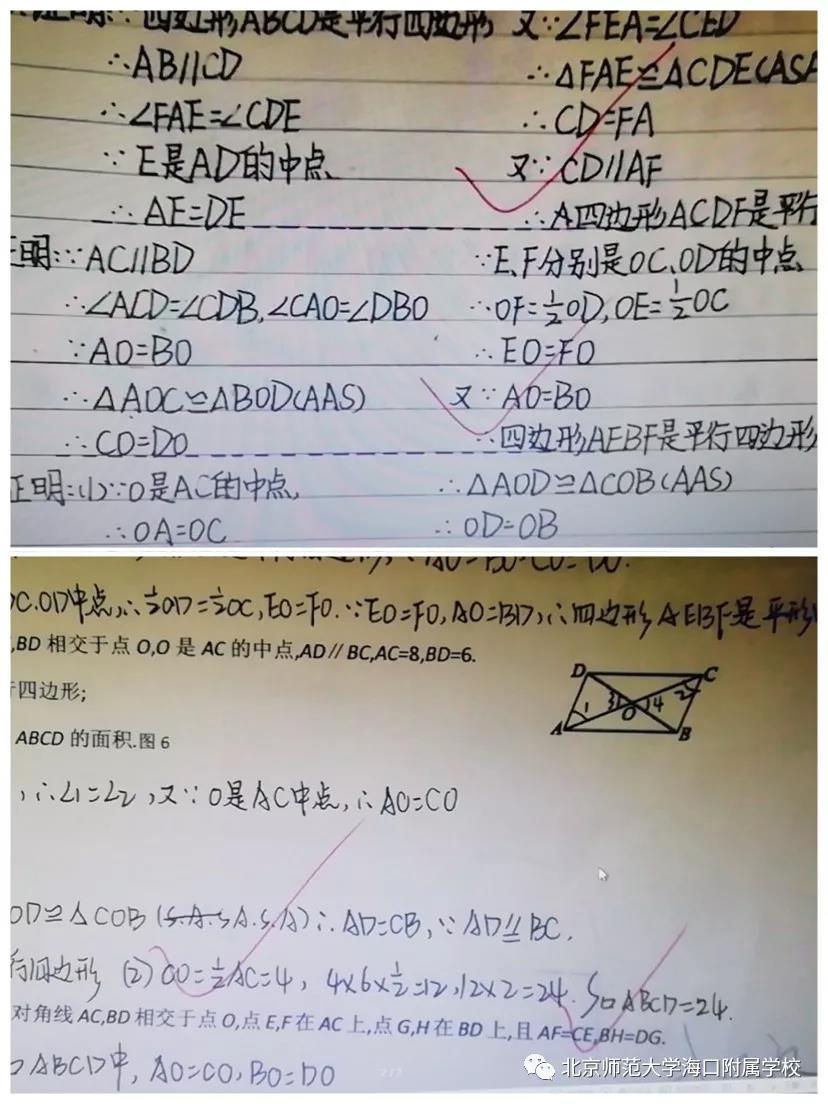 证明:∵四边形ABCD是平行四边形 又∵∠FEA=∠CED
∴AB//CD
∴△FAE≌△CDE(ASA
∴∠FAE=∠CDE
∴CD=FA
∵E是AD的中点
又∵CD//AF
∴AE=DE
∴A四边形ACDF是平行
证明:∵AC//BD
∵E、F分别是OC、OD的中点
∴∠ACD=∠CDB,∠CAO=∠DBO
∴OF=½OD,OE=½OC
∵AO=BO
∴EO=FO
∴△AOC≌△BOD(AAS)
又∵AO=BO
∴CO=DO
∴四边形AEBF是平行四边形
证明:(1)∵O是AC的中点,
∴△AOD≌△COB(AAS)
∴OA=OC
∴OD=OB
OC.OD中点,∴½OD=½OC,EO=FO.∵EO=FO,AO=BD,∴四边形AEBF是平形
,BD 相交于点 O,O 是 AC 的中点,AD∥BC,AC=8,BD=6.
行四边形;
ABCD 的面积.图 6
D C
1 3 4 2
O
A B
,∴∠1=∠2,又∵O是AC中点,∴AO=CO
OD≌△COB (S.A.S A.S.A)∴AD=CB,∵AD∥BC.
行四边形 (2) CO=½AC=4, 4×6×½=12,12×2=24. S▱ABCD=24.
对角线 AC,BD 相交于点 O,点 E,F 在 AC 上,点 G,H 在 BD 上,且 AF=CE,BH=DG.
▱ABCD中, AO=CO,BO=DO
北京师范大学海口附属学校